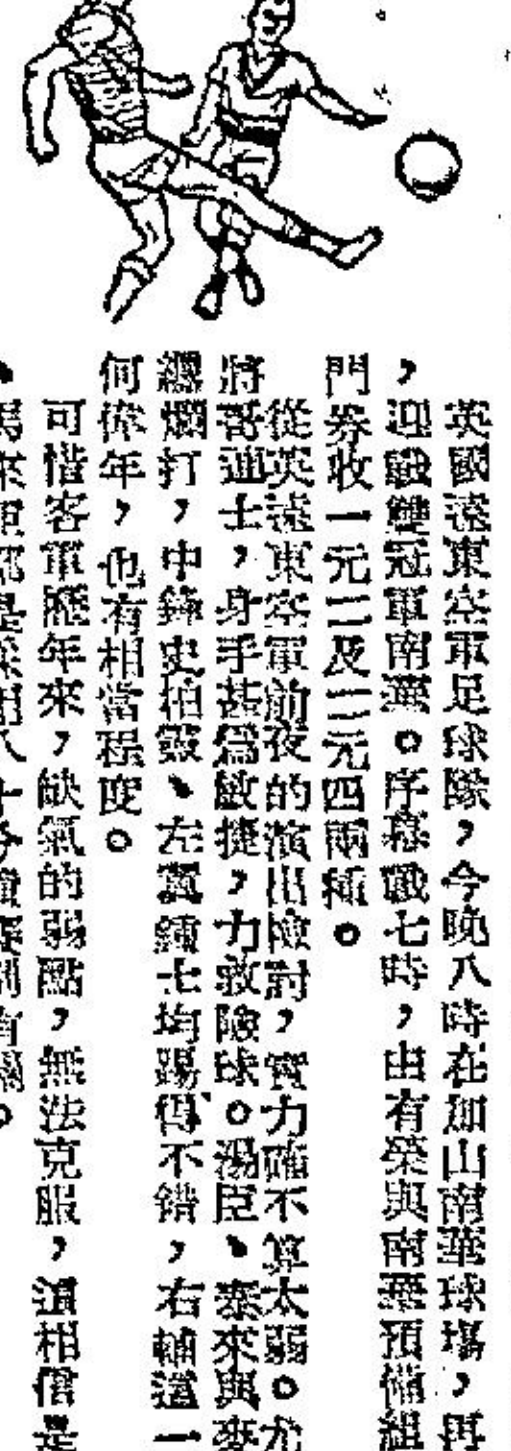 英國遠東空軍足球隊，今晚八時在加山南華球塲，再
，迎戰雙冠軍南華。序幕戰七時，由有榮與南華預備組
門券收一元二及二元四兩種。
從英遠東空軍前夜的演出檢討，實力確不算太弱。尤
將哥迪士，身手甚爲敏捷，力救險球。湯臣、泰來與麥
爛打，中鋒史柏靈、左翼鍾士均踢得不錯，右輔這一
何偉年，也有相當程度。
可惜客軍歷年來，缺氣的弱點，無法克服，這相信是